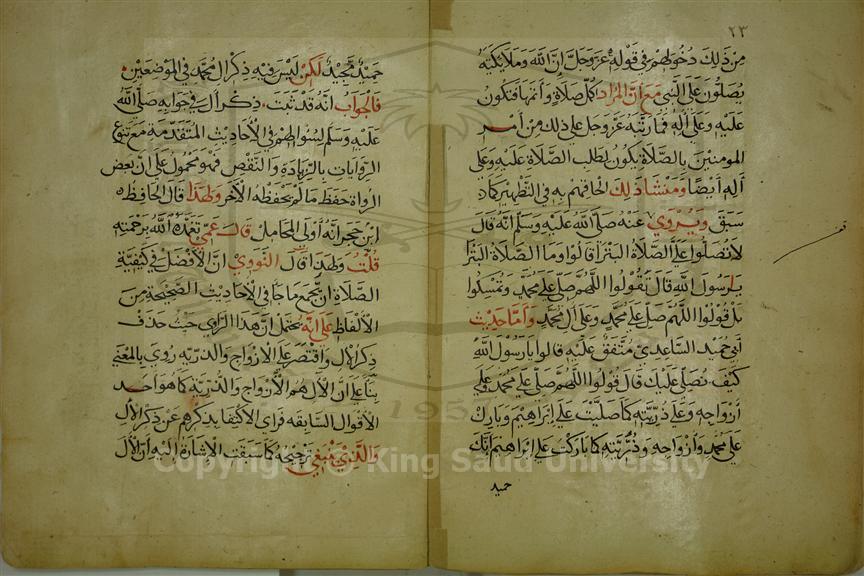 ٢٣
من ذلك دخولهم في قوله عز وجل ان الله وملائكته
يصلون على النبي مع ان المراد كل صلاة وأتمها فتكون
عليه وعلى آله فما رتبه عز وجل على ذلك من أمر
المومنين بالصلاة يكون بطلب الصلاة عليه وعلى
آله أيضا ومنشا ذلك الحاقهم به في التطهير كما
سبق ويروي عنه صلى الله عليه وسلم انه قال
لا تصلوا علي الصلاة البترا قالوا وما الصلاة البترا
يا رسول الله قال تقولوا اللهم صل على محمد وتمسكوا
بل قولوا اللهم صل على محمد وعلى آل محمد وأما حديث
أبي حميد الساعدي متفق عليه قالوا يا رسول الله
كيف نصلي عليك قال قولوا اللهم صل على محمد وعلى
أزواجه وعلى ذريته كما صليت على إبراهيم وبارك
على محمد وأزواجه وذريته كما باركت على إبراهيم إنك
حميد
حميد مجيد لكن ليس فيه ذكر ال محمد في الموضعين
فالجواب انه قد ثبت ذكر ال في جوابه صلى الله
عليه وسلم لسؤالهم في الأحاديث المتقدمة مع تنوع
الروايات بالزيادة والنقص فهو محمول على ان بعض
الرواة حفظ ما لم يحفظه الآخر ولهذا قال الحافظ
ابن حجر انه أولى المحامل قال عمي تغمده الله برحمته
قلت ولهذا قال النووي ان الأفضل في كيفية
الصلاة ان يجمع ما جا في الاحاديث الصحيحة من
الألفاظ على انه يحتمل ان هذا الراوي حيث حذف
ذكر الال واقتصر على الازواج والذريه روي بالمعني
بنا على ان الآل هم الأزواج والذرية كما هو احد
الاقوال السابقه فراي الاكتفا بذكرهم عن ذكر الال
والذي ينبغي ترجيحه كما سبقت الاشارة إليه ان الآل
Copyright © King Saud University
195